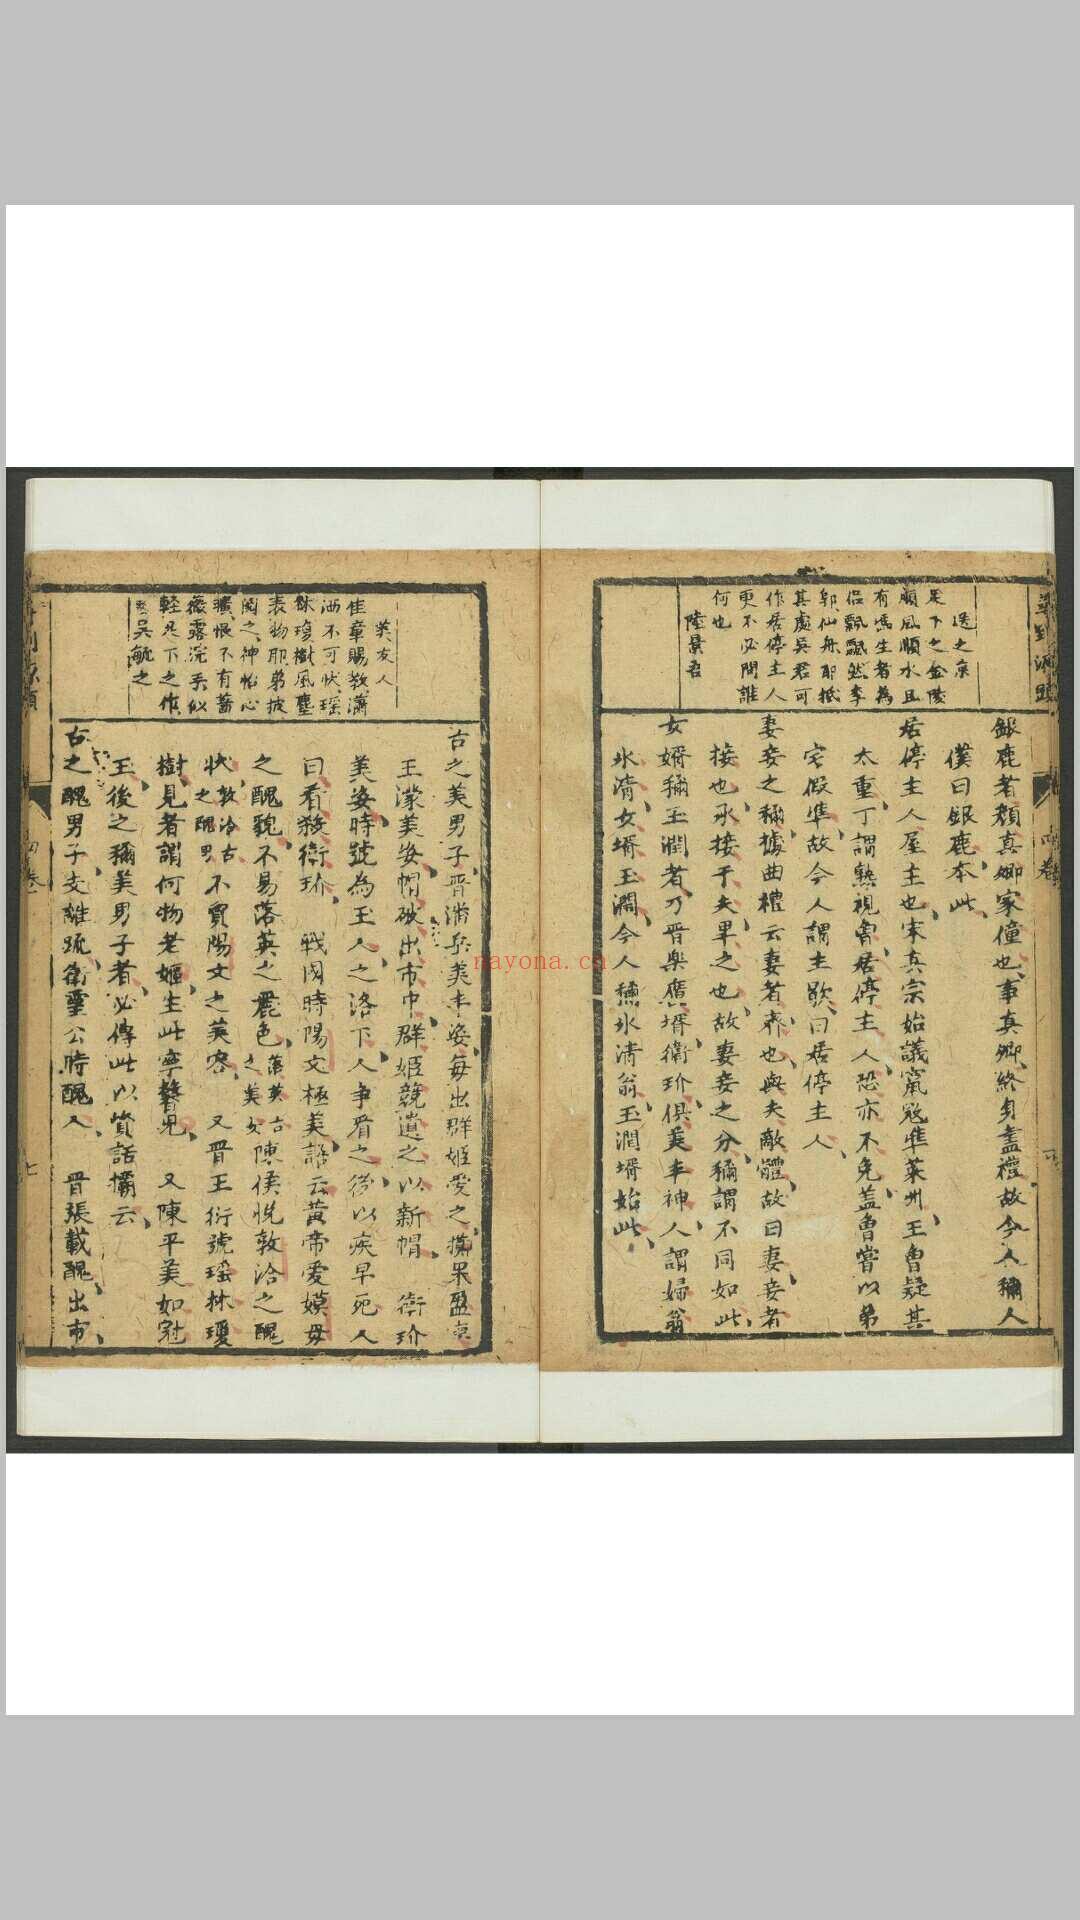 送之京
足下之金陵
順風順水且
有馮生者為
侶飄飄然李
郭仙舟耶抵
其處吳君可
作居停主人
更不必問誰
何也
陸景吾
銀鹿者顏真卿家僮也事真卿終身盡禮故今人稱人
僕曰銀鹿本此
居停主人屋主也宋真宗始議竄寇準萊州王曾疑其
太重丁謂熟視曾居停主人恐亦不免蓋曾嘗以第
宅假準故今人謂主歇曰居停主人
妻妾之稱據曲禮云妻者齊也與夫敵體故曰妻妾者
接也承接于夫卑之也故妻妾之分稱謂不同如此
女婿稱玉潤者乃晉樂廣婿衛玠俱美丰神人謂婦翁
氷清女壻玉潤今人稱氷清翁玉潤壻始此
美友人
佳章賜教瀟
洒不可狀瑤
林瓊樹風塵
表物耶弟披
閱之神怡心
曠恨不有薔
薇露浣手似
輕足下之作
吳毓之
古之美男子晉潘岳美丰姿每出群姬愛之擲果盈車
王濛美姿帽破出市中群姬競遺之以新帽 衛玠
美姿時號為玉人之洛下人爭看之後以疾早死人
曰看殺衛玠 戰國時陽文極美語云黃帝愛嫫母
之醜貌不易落英之麗色落英古之美女陳侯悅敦洽之醜
狀敦洽古之醜男不貿陽文之美容 又晉王衍號瑤林瓊
樹見者謂何物老嫗生此寧馨兒 又陳平美如冠
玉後之稱美男子者必傳此以資話欛云
古之醜男子支離疏衛靈公時醜人 晉張載醜出市
四卷
七
nayona.cn